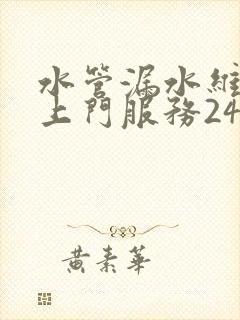 水管漏水維
上門服務24
黃素華